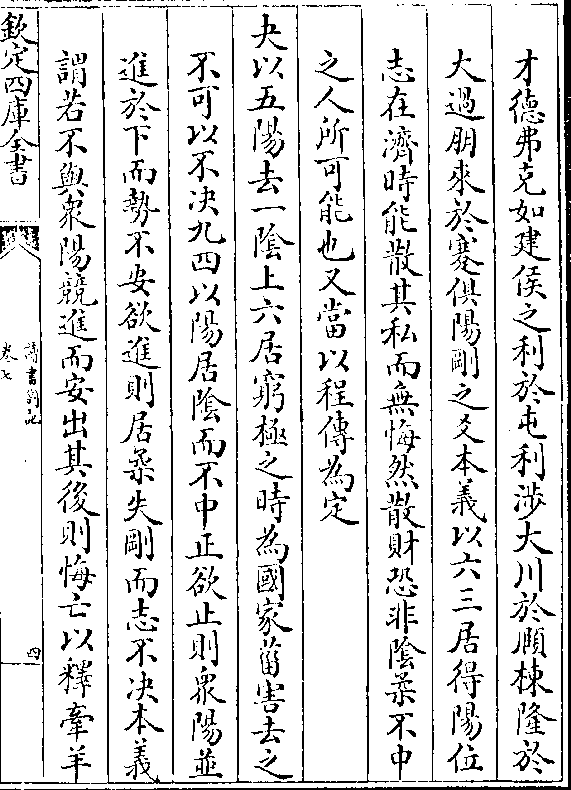 才德弗克如建侯之利於屯利涉大川於頤棟隆於
大過朋來於蹇俱陽剛之爻本義以六三居得陽位
志在濟時能散其私而無悔然散財恐非陰柔不中
之人所可能也又當以程傳為定
夬以五陽去一陰上六居窮極之時為國家菑害去之
不可以不决九四以陽居陰而不中正欲止則衆陽並
進於下而勢不安欲進則居柔失剛而志不决本義
謂若不與衆陽競進而安出其後則悔亡以釋牽羊
欽定四庫全書
讀書劄記
卷七
四